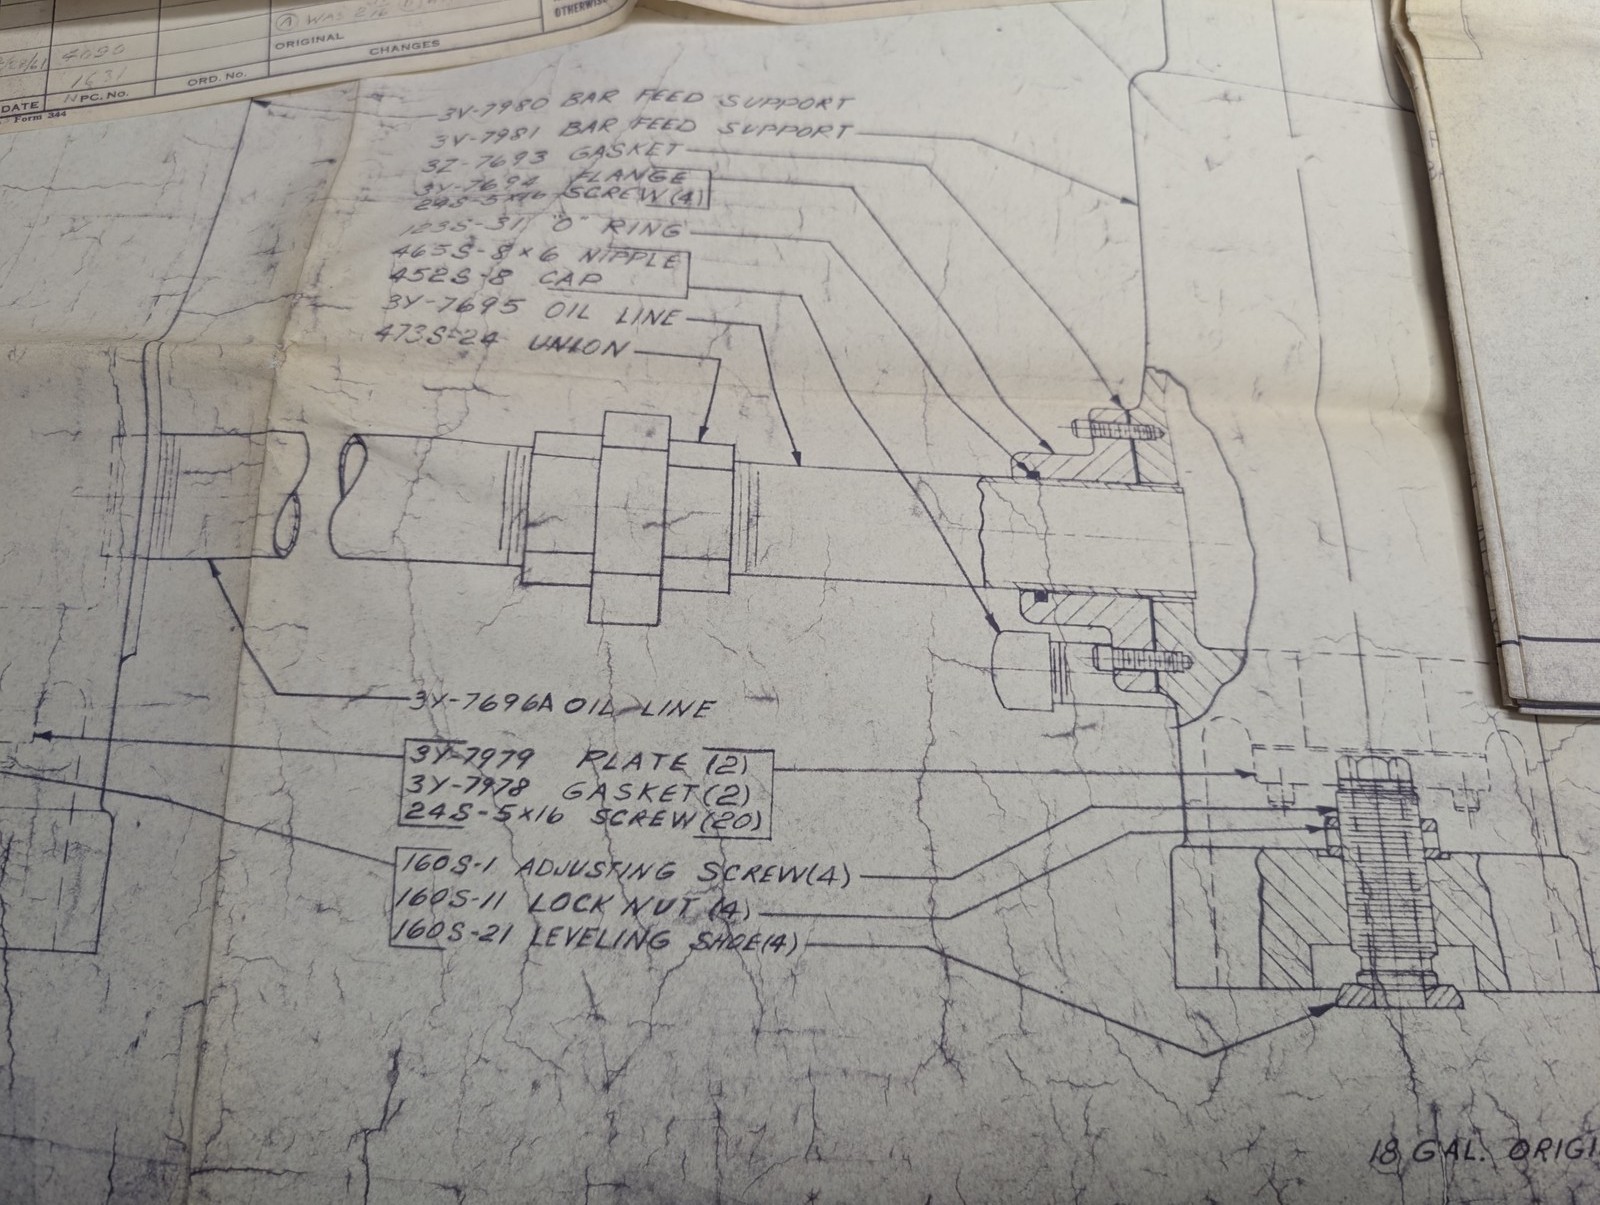 (A) WAS 2 1/2
OTHERWISE
ORIGINAL
CHANGES
4090
1631
DATE
NPC. NO.
ORD. NO.
Form 344
3Y-7980 BAR FEED SUPPORT
3Y-7981 BAR FEED SUPPORT
3Z-7693 GASKET
3Y-7694 FLANGE
24S-5x16 SCREW (4)
"O" RING
465S-8x6 NIPPLE
452S-8 CAP
3Y-7695 OIL LINE
473S-24 UNION
3Y-7696A OIL LINE
3Y-7979 PLATE (2)
3Y-7978 GASKET (2)
24S-5x16 SCREW (20)
160S-1 ADJUSTING SCREW (4)
160S-11 LOCK NUT (4)
160S-21 LEVELING SHOE (4)
18 GAL. ORIGI